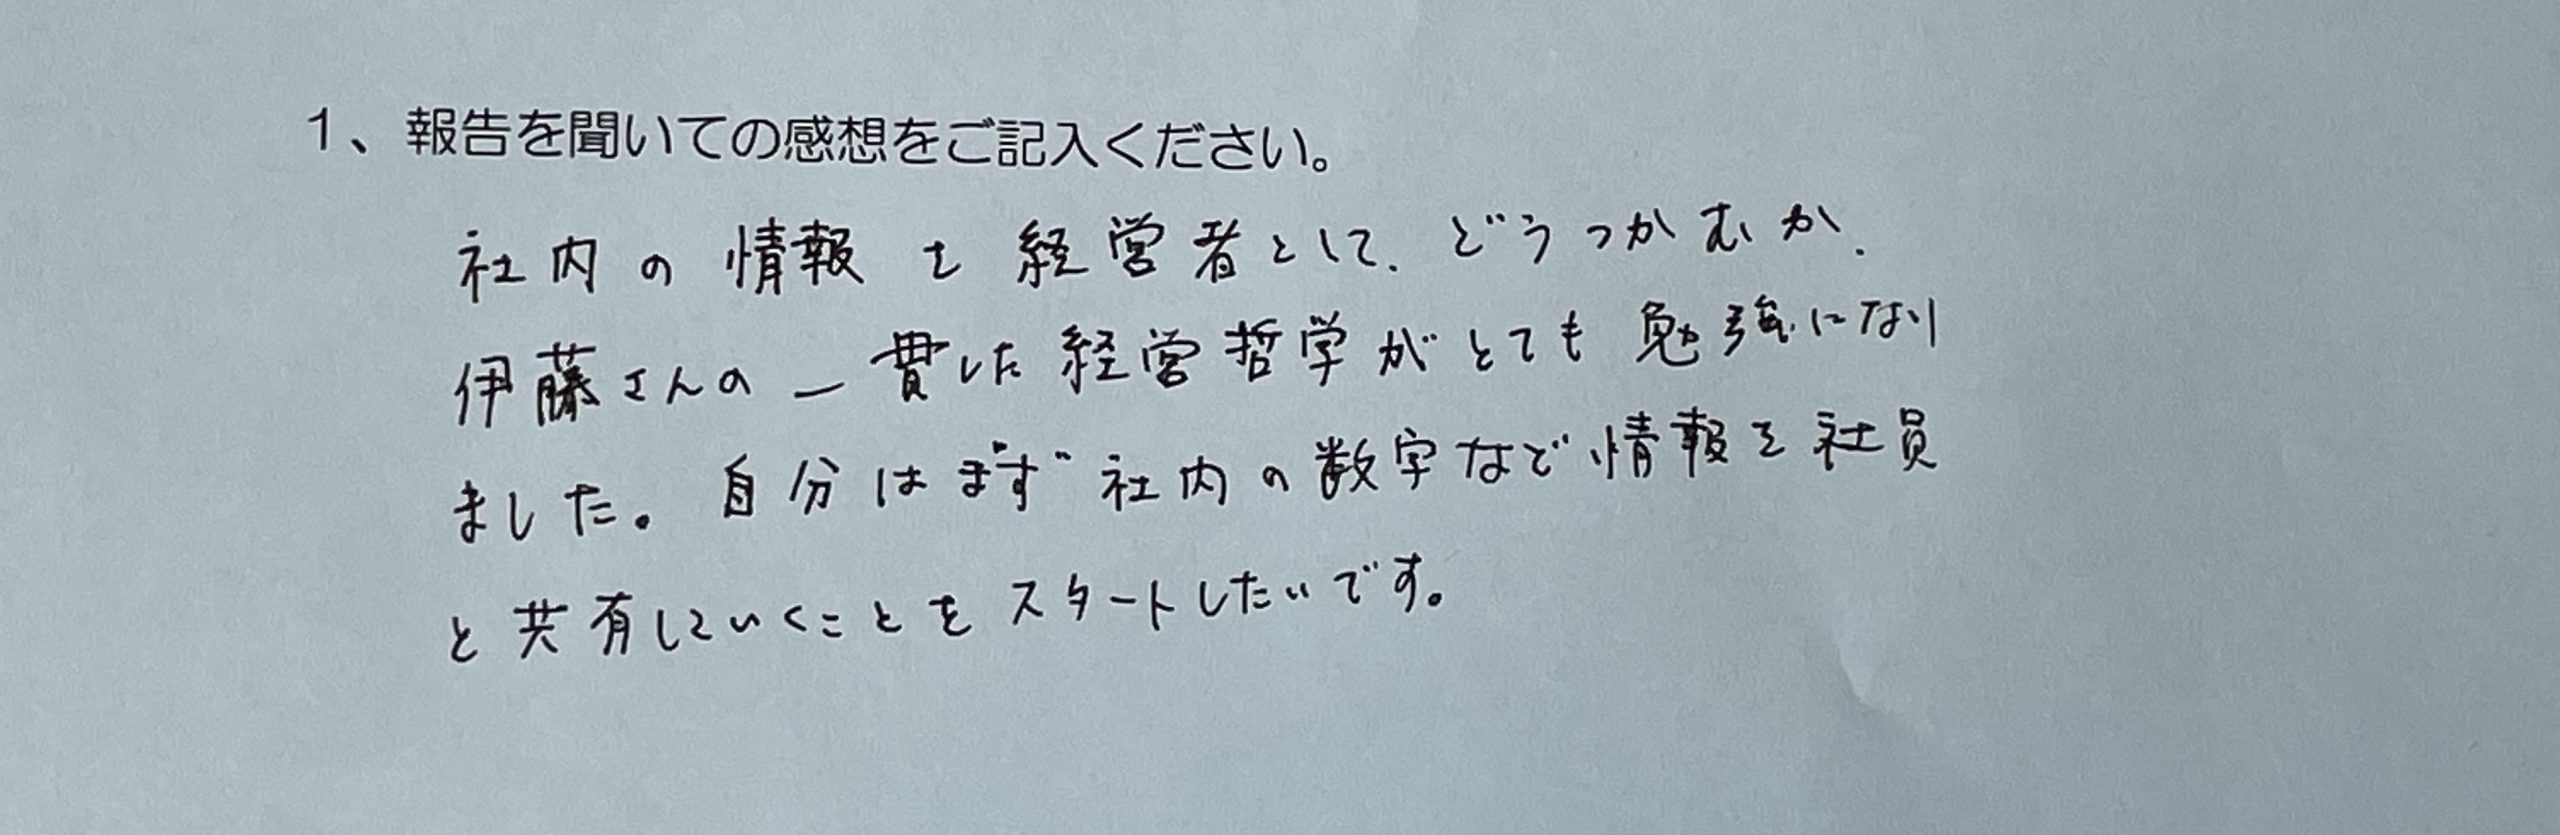 1、報告を聞いての感想をご記入ください。
社内の情報を経営者として、どうつかむか、
伊藤さんの一貫した経営哲学がとても勉強になり
ました。自分はまず社内の数字など情報を社員
と共有していくことをスタートしたいです。